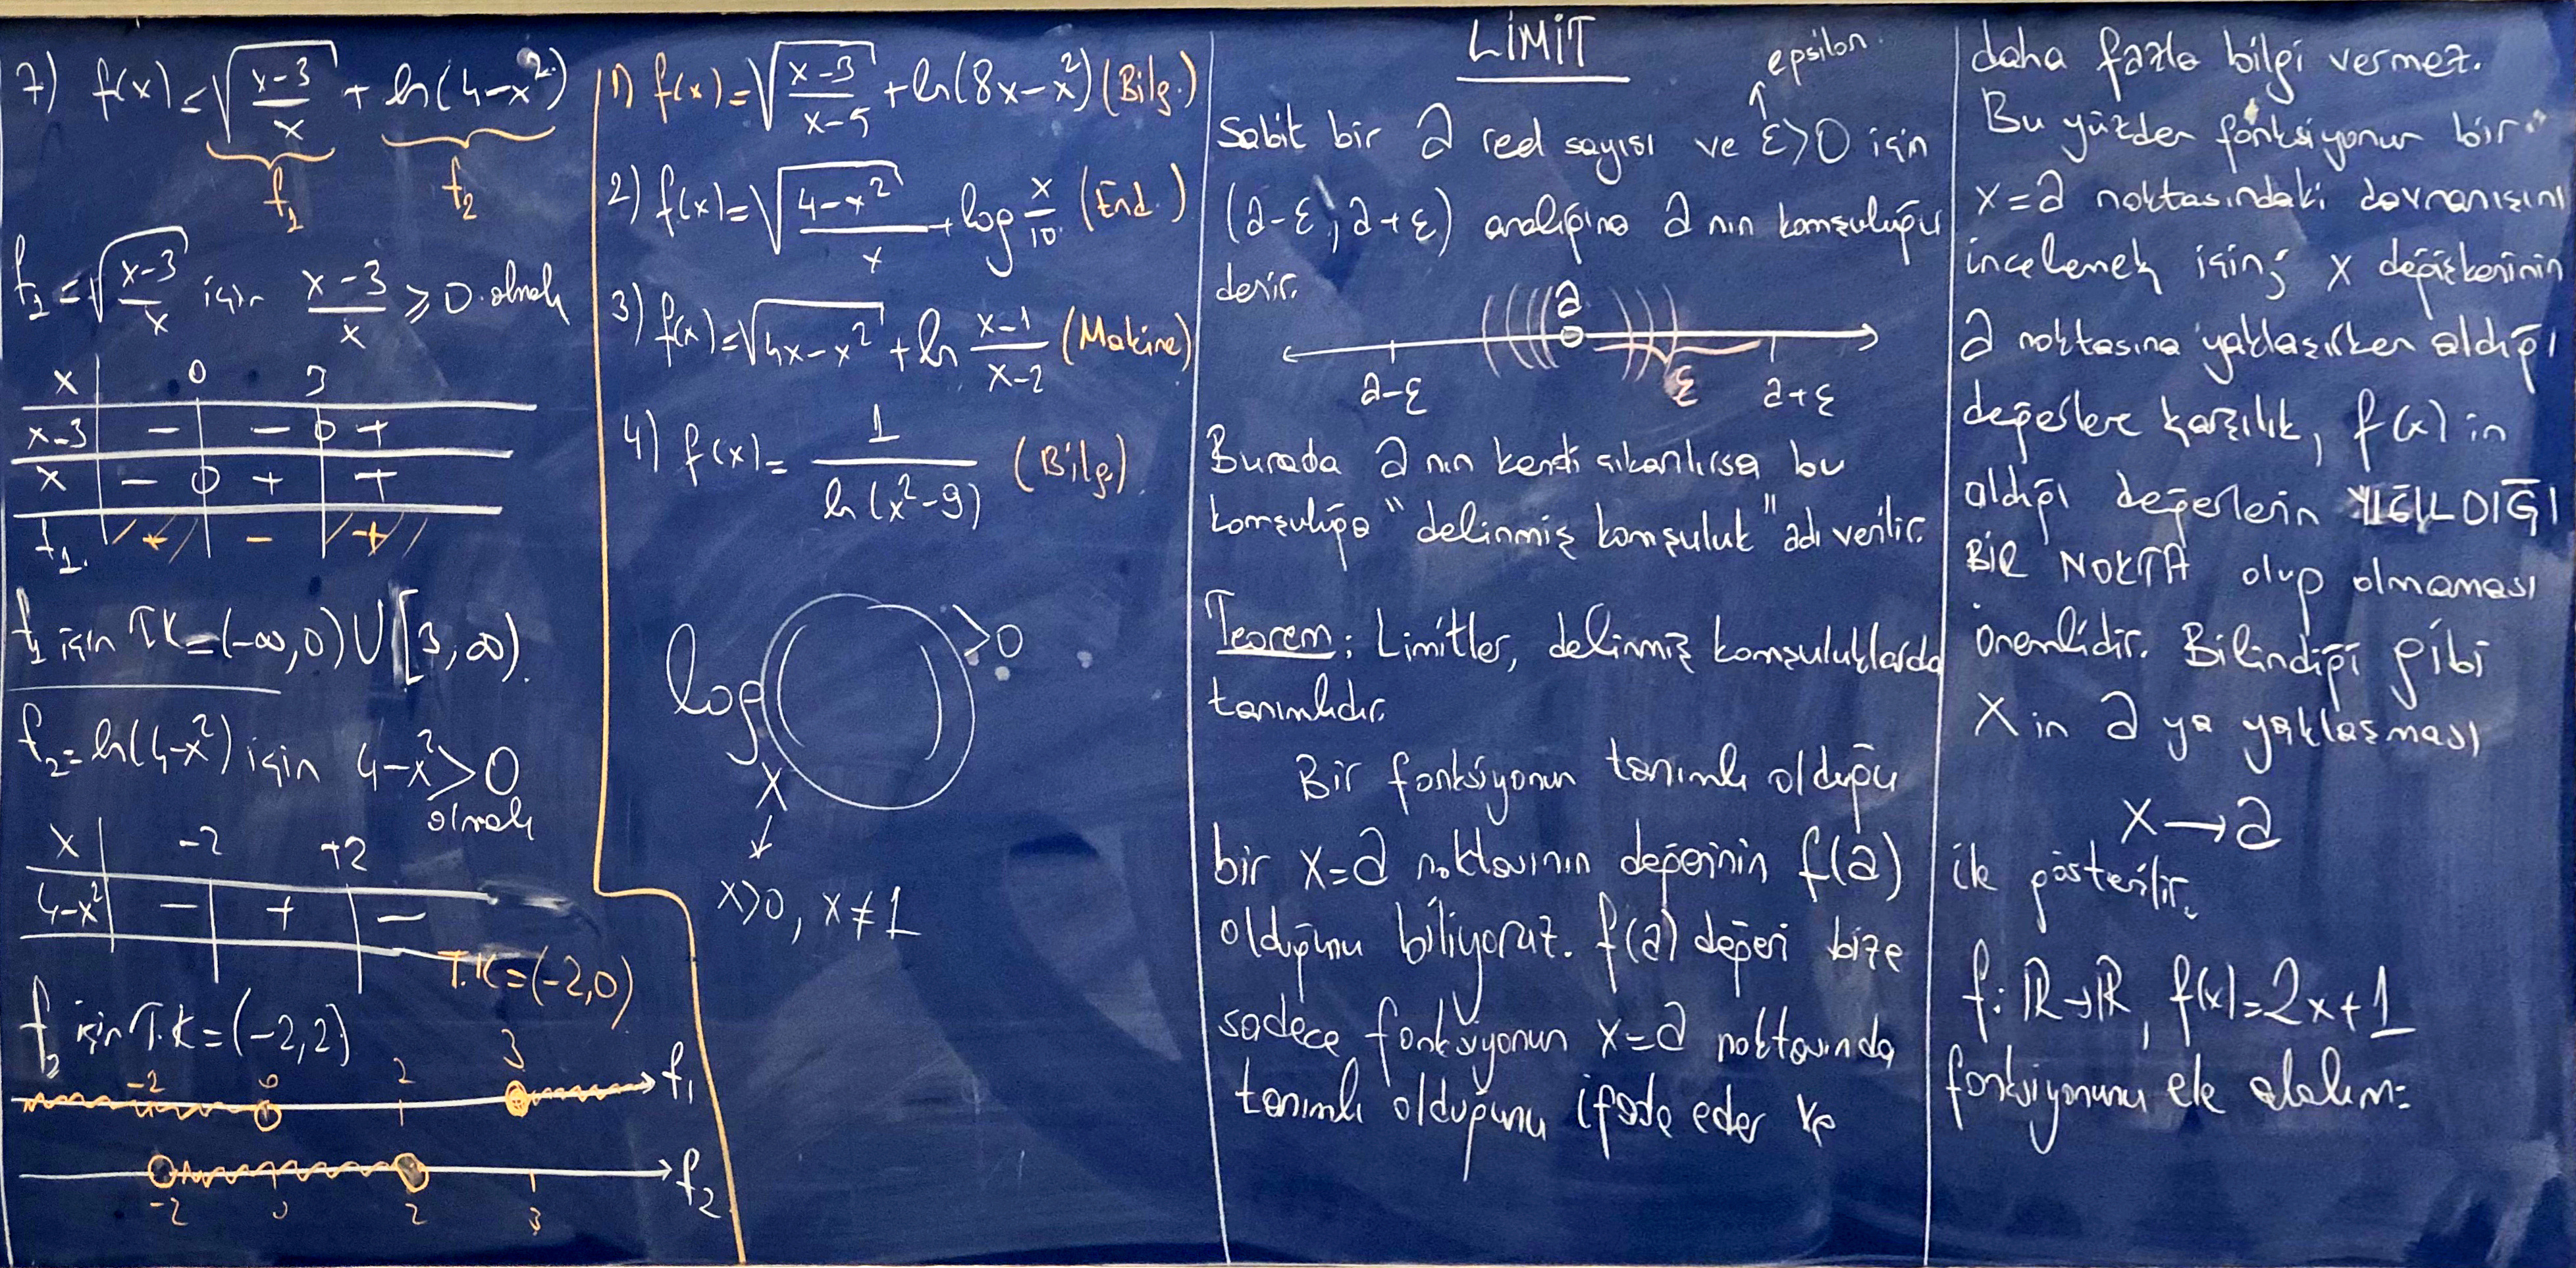 7) f(x) = √((x-3)/x) + ln(4-x²)
f₁ f₂
f₁ = √((x-3)/x) için (x-3)/x ≥ 0 olmalı
x 0 3
x-3 - - 0 +
x - 0 + +
f₁ + - +
f₁ için T.K = (-∞,0) ∪ [3,∞).
f₂ = ln(4-x²) için 4-x² > 0
olmalı
x -2 +2
4-x² - + -
T.K = (-2,0)
f₂ için T.K = (-2,2)
-2 0 2 3 f₁
f₂
-2 0 2 3
1) f(x) = √((x-3)/(x-5)) + ln(8x-x²) (Bilg.)
2) f(x) = √((4-x²)/x) + log x/10 (End.)
3) f(x) = √(4x-x²) + ln (x-1)/(x-2) (Makine)
4) f(x) = 1/ln(x²-9) (Bilg.)
logₓ ( ) > 0
x>0, x≠1
LİMİT
epsilon
Sabit bir a reel sayısı ve ε>0 için
(a-ε, a+ε) aralığına a nın komşuluğu
denir.
a
a-ε ε a+ε
Burada a nın kendi çıkarılırsa bu
komşuluğa "delinmiş komşuluk" adı verilir.
Teorem: Limitler, delinmiş komşuluklarda
tanımlıdır.
Bir fonksiyonun tanımlı olduğu
bir x=a noktasının değerinin f(a)
olduğunu biliyoruz. f(a) değeri bize
sadece fonksiyonun x=a noktasında
tanımlı olduğunu ifade eder ve
daha fazla bilgi vermez.
Bu yüzden fonksiyonun bir
x=a noktasındaki davranışını
incelemek için; x değişkeninin
a noktasına yaklaşırken aldığı
değerlere karşılık, f(x) in
aldığı değerlerin YIĞILDIĞI
BİR NOKTA olup olmaması
önemlidir. Bilindiği gibi
x in a ya yaklaşması
x → a
ile gösterilir.
f: ℝ→ℝ, f(x)=2x+1
fonksiyonunu ele alalım: